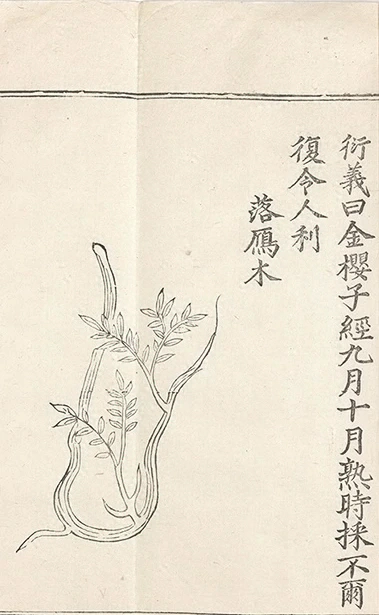 衍義曰金櫻子經九月十月熟時採不爾
復令人利
落鴈木